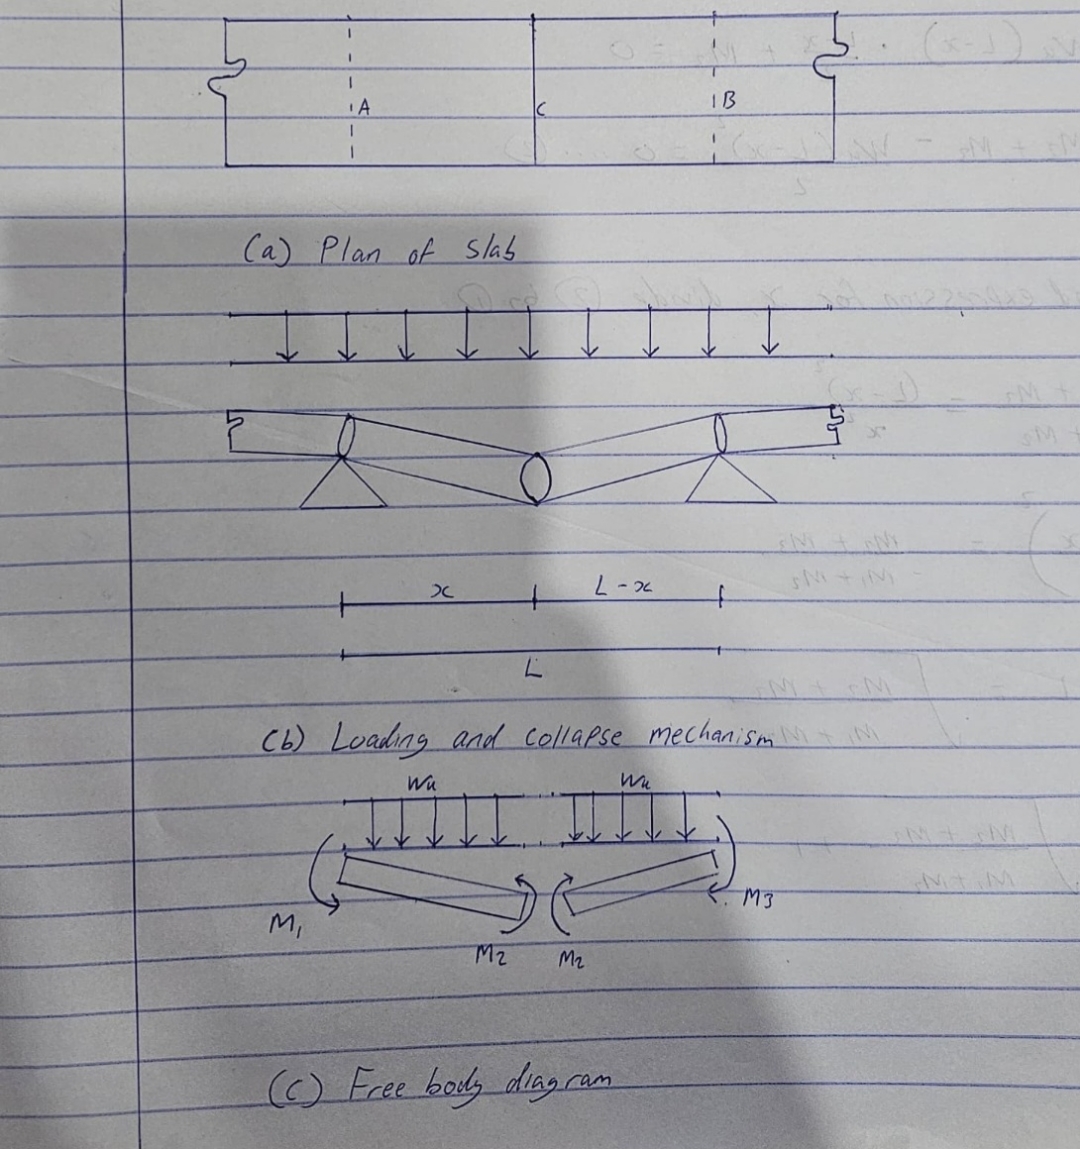 A C B
(a) Plan of slab
x L-x
L
(b) Loading and collapse mechanism
Wu Wu
M1 M3
M2 M2
(c) Free body diagram